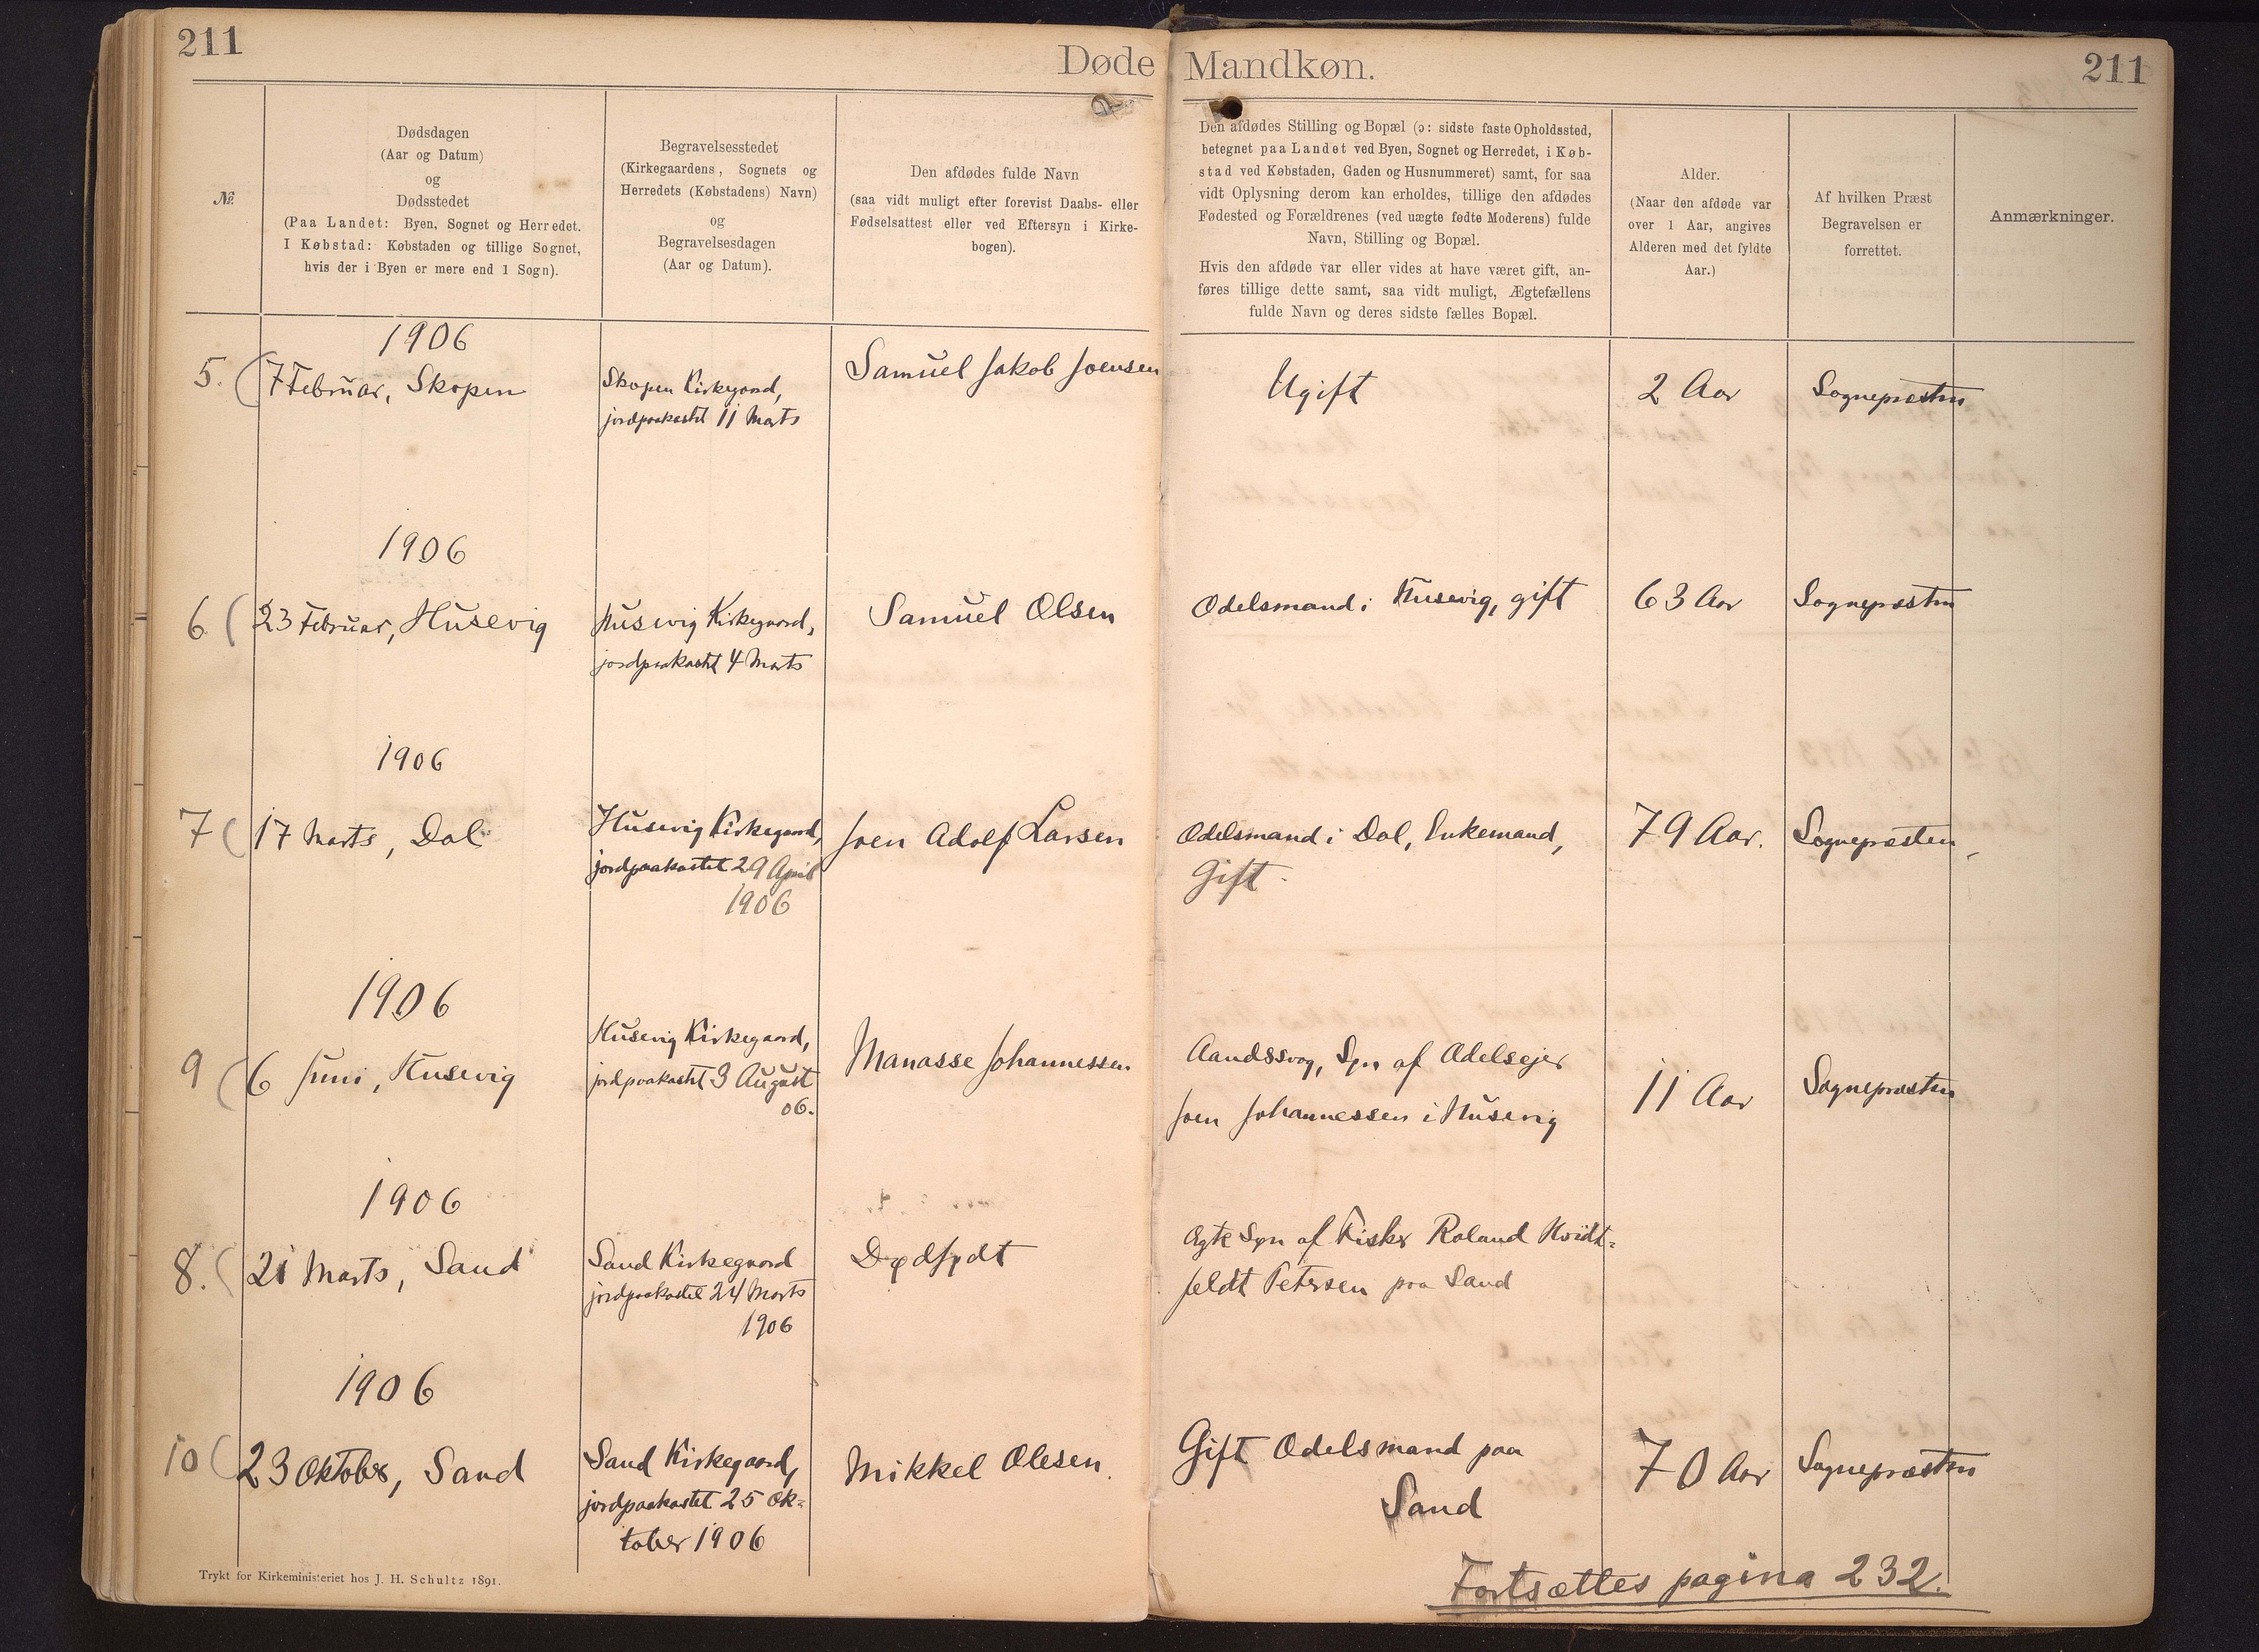 211
Døde Mandkøn.
211
№
Dødsdagen
(Aar og Datum)
og
Dødsstedet
(Paa Landet: Byen, Sognet og Herredet.
I Købstad: Købstaden og tillige Sognet,
hvis der i Byen er mere end 1 Sogn).
Begravelsesstedet
(Kirkegaardens, Sognets og
Herredets (Købstadens) Navn)
og
Begravelsesdagen
(Aar og Datum).
Den afdødes fulde Navn
(saa vidt muligt efter forevist Daabs- eller
Fødselsattest eller ved Eftersyn i Kirke-
bogen).
Den afdødes Stilling og Bopæl (ɔ: sidste faste Opholdssted,
betegnet paa Landet ved Byen, Sognet og Herredet, i Køb-
stad ved Købstaden, Gaden og Husnummeret) samt, for saa
vidt Oplysning derom kan erholdes, tillige den afdødes
Fødested og Forældrenes (ved uægte fødte Moderens) fulde
Navn, Stilling og Bopæl.
Hvis den afdøde var eller vides at have været gift, an-
føres tillige dette samt, saa vidt muligt, Ægtefællens
fulde Navn og deres sidste fælles Bopæl.
Alder.
(Naar den afdøde var
over 1 Aar, angives
Alderen med det fyldte
Aar.)
Af hvilken Præst
Begravelsen er
forrettet.
Anmærkninger.
1906
5. ( 7 Februar, Skopen
Skopen Kirkegaard,
jordpaakastet 11 Marts
Samuel Jakob Joensen
Ugift
2 Aar
Sognepræsten
1906
6 ( 23 Februar, Husevig
Husevig Kirkegaard,
jordpaakastet 4 Marts
Samuel Olsen
Odelsmand i Husevig, gift
63 Aar
Sognepræsten
1906
7 ( 17 Marts, Dal
Husevig Kirkegaard,
jordpaakastet 29 April
1906
Joen Adolf Larsen
Odelsmand i Dal, Enkemand,
Gift.
79 Aar.
Sognepræsten,
1906
9 ( 6 Juni, Husevig
Husevig Kirkegaard,
jordpaakastet 3 August
06.
Manasse Johannessen
Aandssvag, Søn af Odelsejer
Joen Johannessen i Husevig
11 Aar
Sognepræsten
1906
8. ( 21 Marts, Sand
Sand Kirkegaard
jordpaakastet 24 Marts
1906
Dødfødt
Ægte Søn af Fisker Roland Hvidt=
feldt Petersen paa Sand
1906
10 ( 23 Oktober, Sand
Sand Kirkegaard,
jordpaakastet 25 Ok=
tober 1906
Mikkel Olesen.
Gift Odelsmand paa
Sand
70 Aar
Sognepræsten
Fortsættes pagina 232.
Trykt for Kirkeministeriet hos J. H. Schultz 1891.